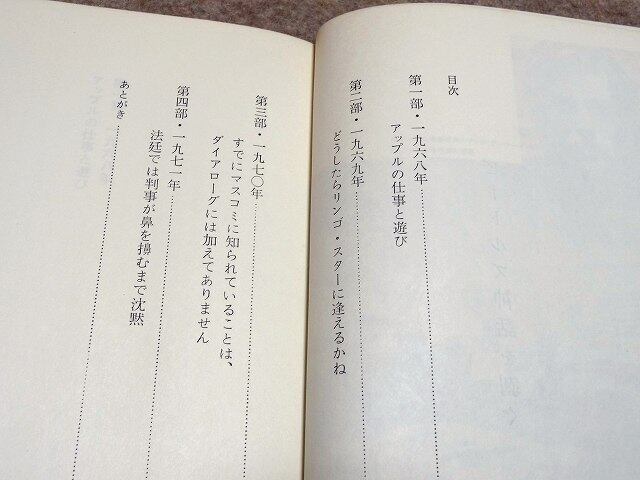 目次
第一部・一九六八年
アップルの仕事と遊び
第二部・一九六九年
どうしたらリンゴ・スターに逢えるかね
第三部・一九七〇年
すでにマスコミに知られていることは、
ダイアローグには加えてありません
第四部・一九七一年
法廷では判事が鼻を擤むまで沈黙
あとがき